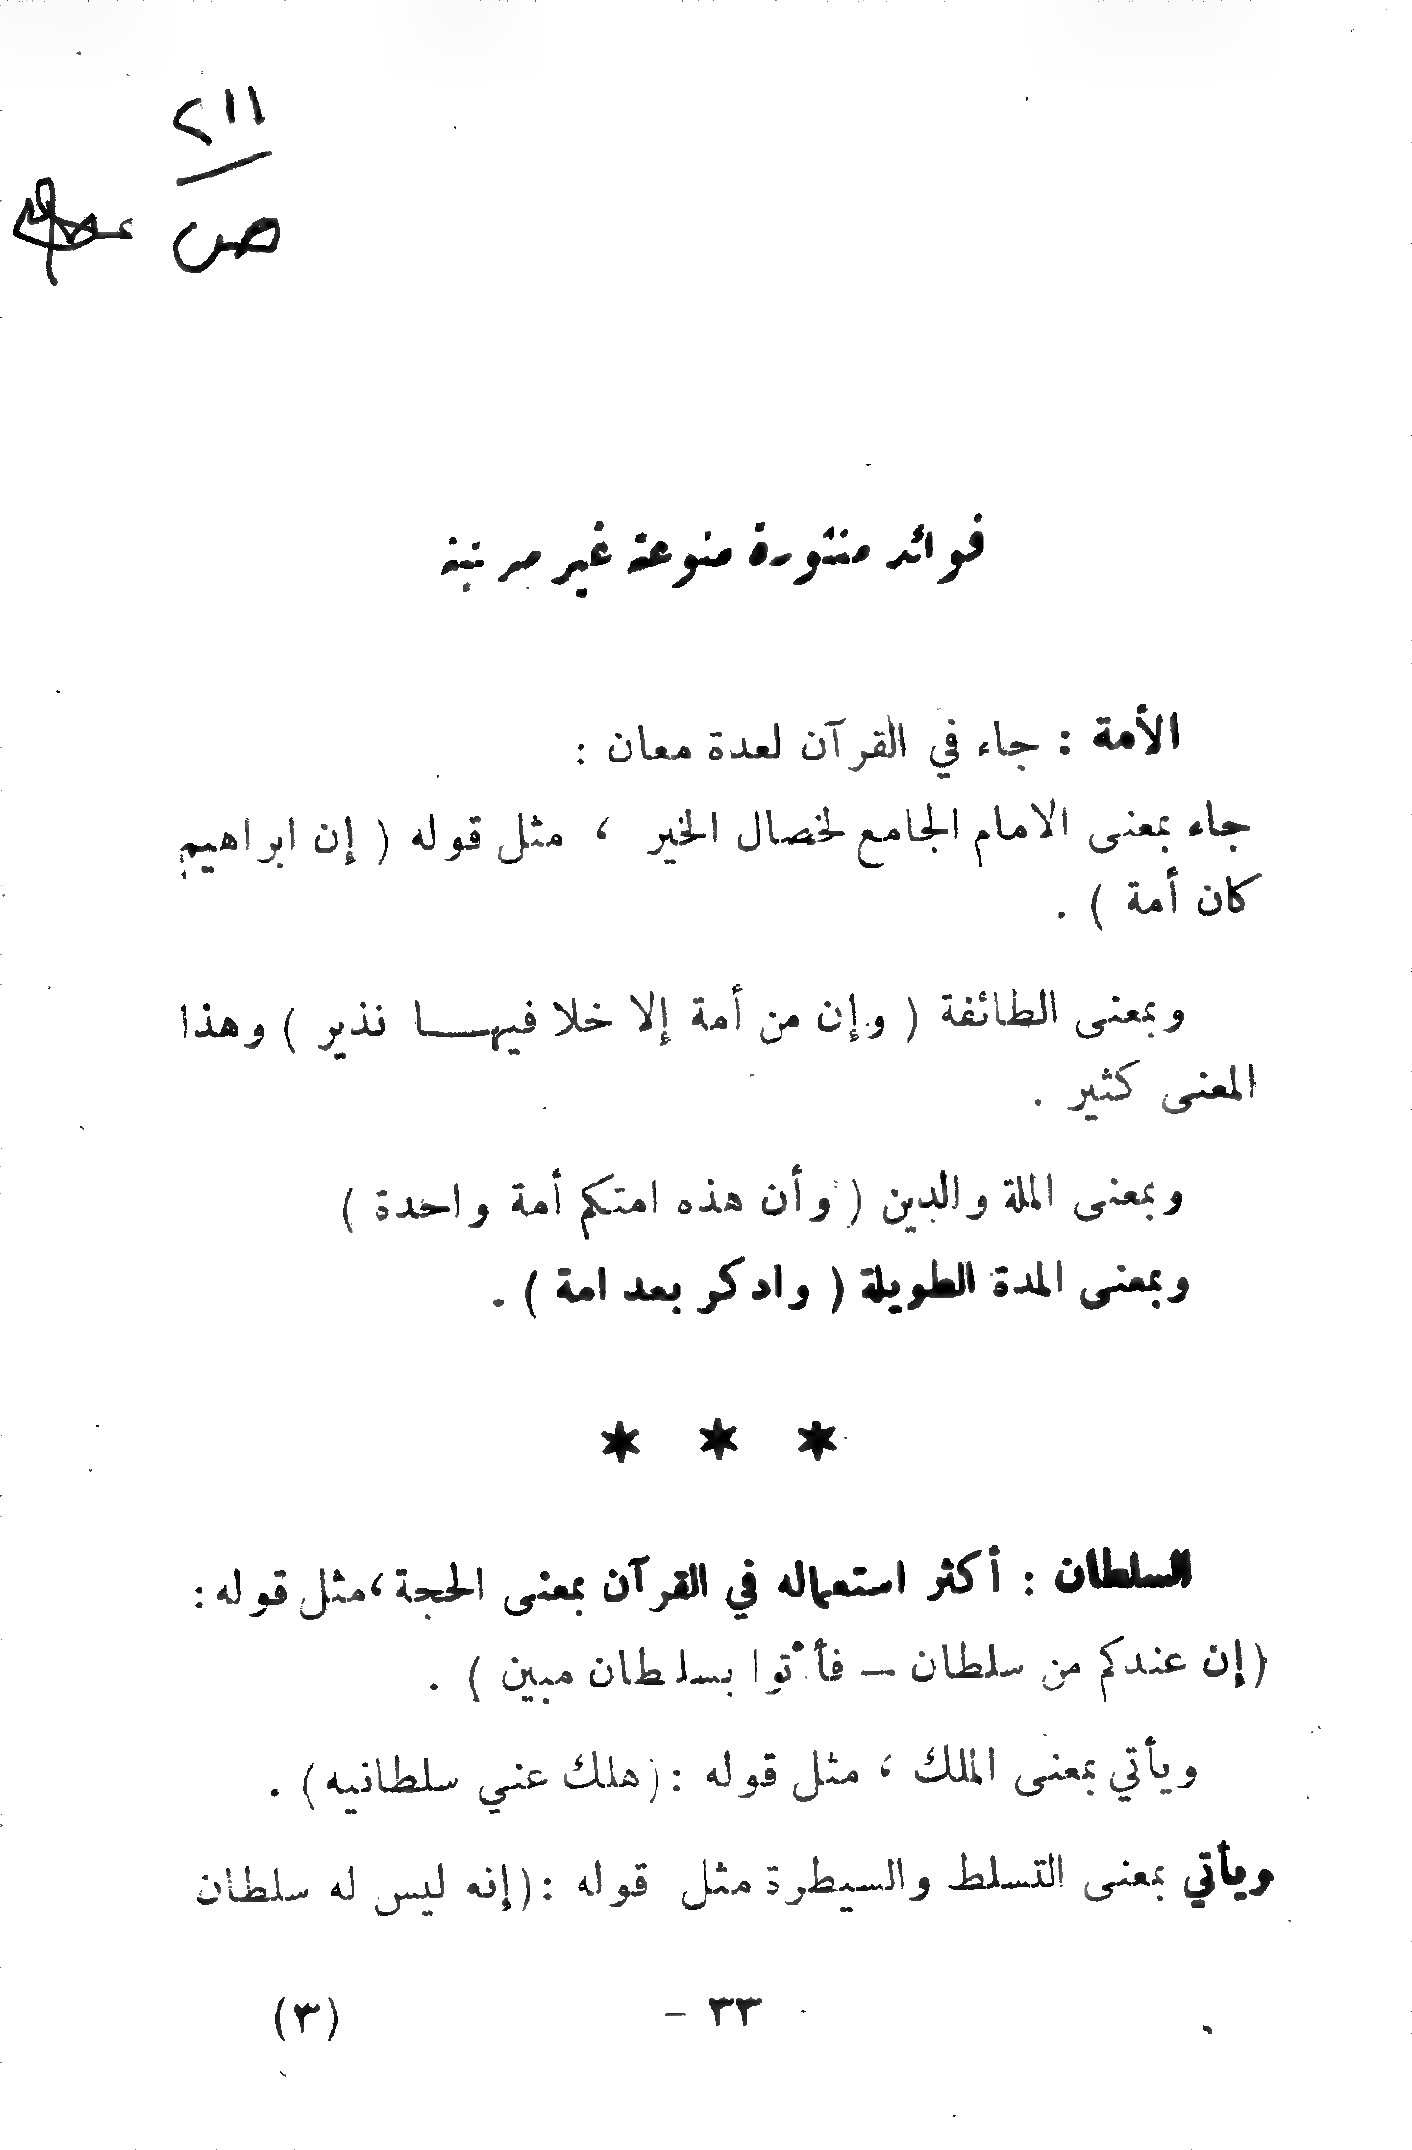 ٢١١
ص
فوائد منثورة منوعة غير مرتبة
الأمة : جاء في القرآن لعدة معان :
جاء بمعنى الامام الجامع لخصال الخير ، مثل قوله ( إن ابراهيم
كان أمة ) .
وبمعنى الطائفة ( وإن من أمة إلا خلا فيهـا نذير ) وهذا
المعنى كثير .
وبمعنى الملة والدين ( وأن هذه امتكم أمة واحدة )
وبمعنى المدة الطويلة ( وادكر بعد امة ) .
* * *
السلطان : أكثر استعماله في القرآن بمعنى الحجة ، مثل قوله :
( إن عندكم من سلطان – فأتوا بسلطان مبين ) .
ويأتي بمعنى الملك ، مثل قوله : ( هلك عني سلطانيه ) .
ويأتي بمعنى التسلط والسيطرة مثل قوله : ( إنه ليس له سلطان
٣٣ -
(٣)